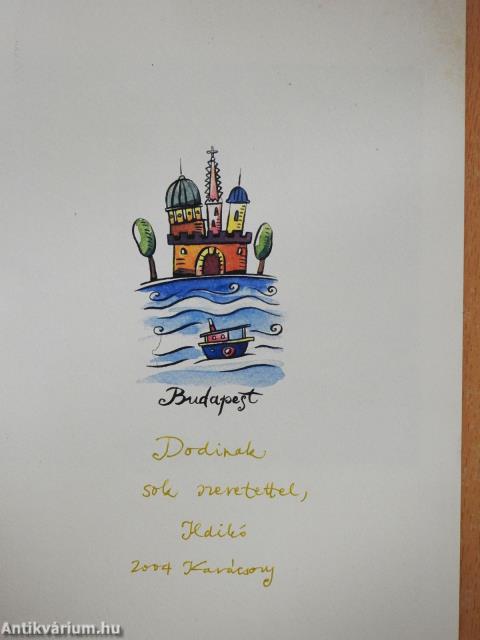 Budapest
Dodinak
sok szeretettel,
Ildikó
2004 Karácsony
Antikvárium.hu